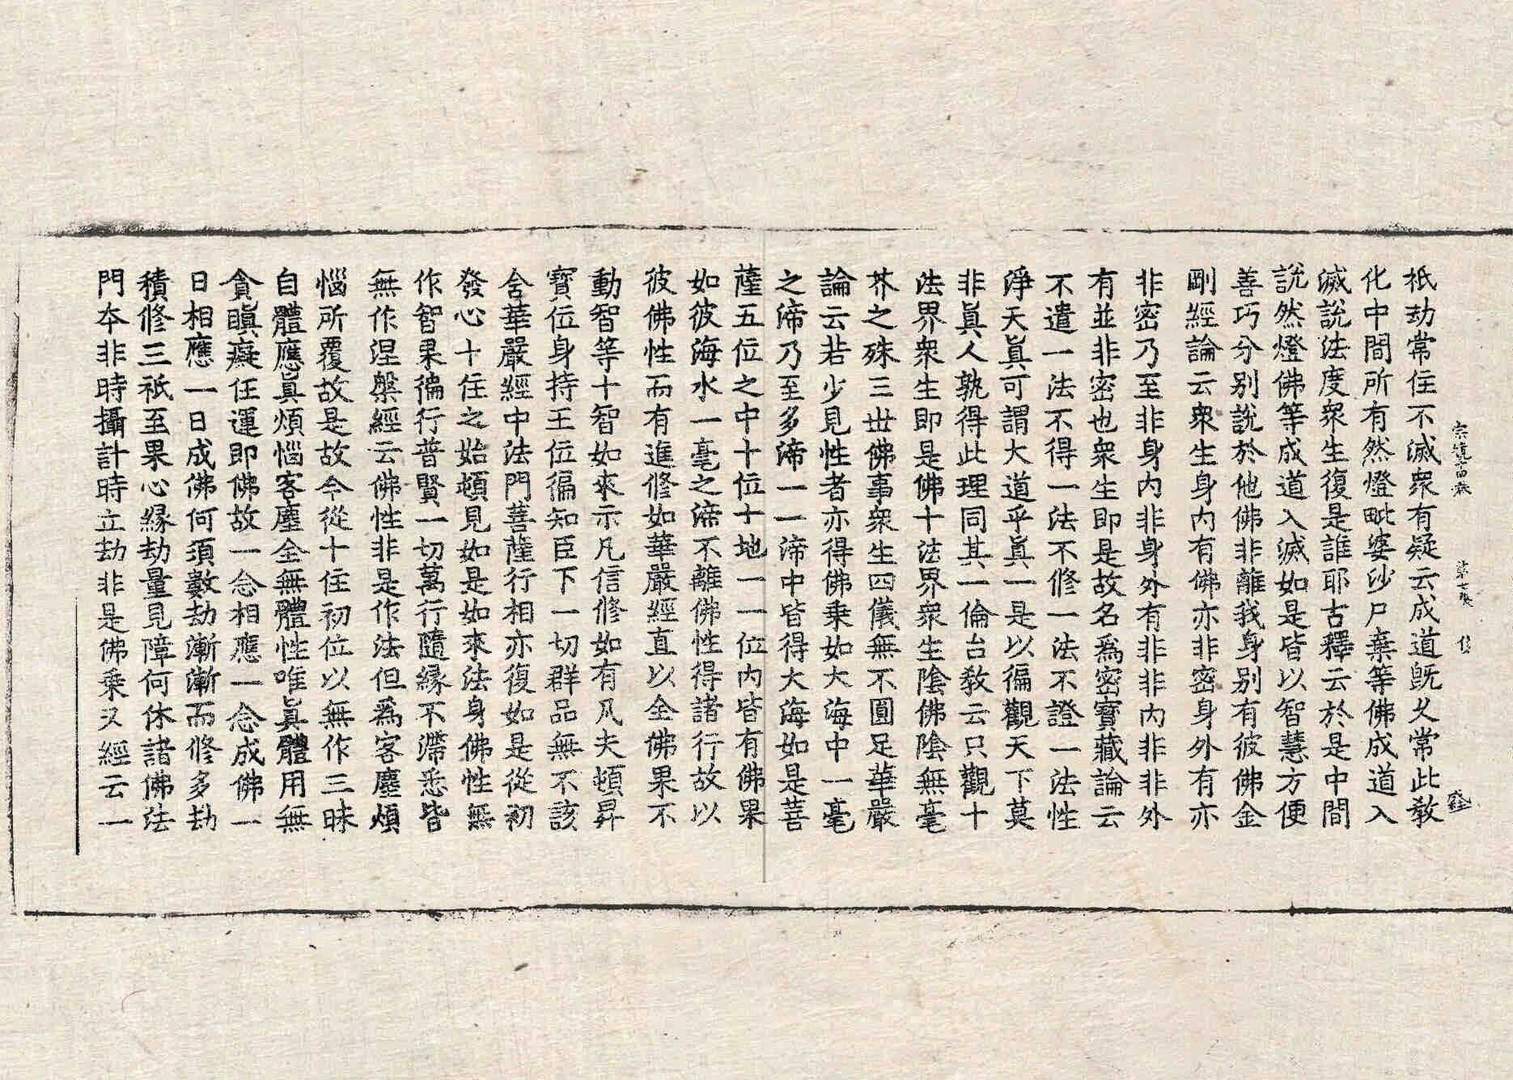 宗鏡
祇劫常住不滅衆有疑云成道旣久常此敎
化中間所有然燈毗婆沙尸棄等佛成道入
滅說法度衆生復是誰耶古釋云於是中間
說然燈佛等成道入滅如是皆以智慧方便
善巧分別說於他佛非離我身別有彼佛金
剛經論云衆生身內有佛亦非密身外有亦
非密乃至非身內非身外有非非內非非外
有並非密也衆生即是故名爲密寶藏論云
不遣一法不得一法不修一法不證一法性
淨天眞可謂大道乎眞一是以徧觀天下莫
非眞人孰得此理同其一倫台敎云只觀十
法界衆生即是佛十法界衆生陰佛陰無毫
芥之殊三世佛事衆生四儀無不圓足華嚴
論云若少見性者亦得佛乘如大海中一毫
之渧乃至多渧一一渧中皆得大海如是菩
薩五位之中十位十地一一位內皆有佛果
如彼海水一毫之渧不離佛性得諸行故以
彼佛性而有進修如華嚴經直以全佛果不
動智等十智如來示凡信修如有凡夫頓昇
寶位身持王位徧知臣下一切群品無不該
含華嚴經中法門菩薩行相亦復如是從初
發心十住之始頓見如是如來法身佛性無
作智果徧行普賢一切萬行隨緣不滯悉皆
無作涅槃經云佛性非是作法但爲客塵煩
惱所覆故是故今從十住初位以無作三昧
自體應眞煩惱客塵全無體性唯眞體用無
貪瞋癡任運即佛故一念相應一念成佛一
日相應一日成佛何須數劫漸漸而修多劫
積修三祇至果心緣劫量見障何休諸佛法
門本非時攝計時立劫非是佛乘又經云一